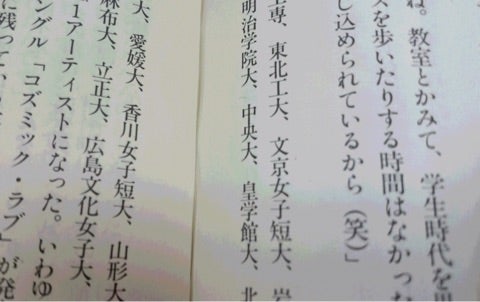 ね。教室とかみて、学生時代を思
スを歩いたりする時間はなかった
し込められているから（笑）」
工専、東北工大、文京女子短大、岩
明治学院大、中央大、皇学館大、北
大、愛媛大、香川女子短大、山形大
麻布大、立正大、広島文化女子大、
1アーティストになった。いわゆ
ングル「コズミック・ラブ」が発
に残ってい